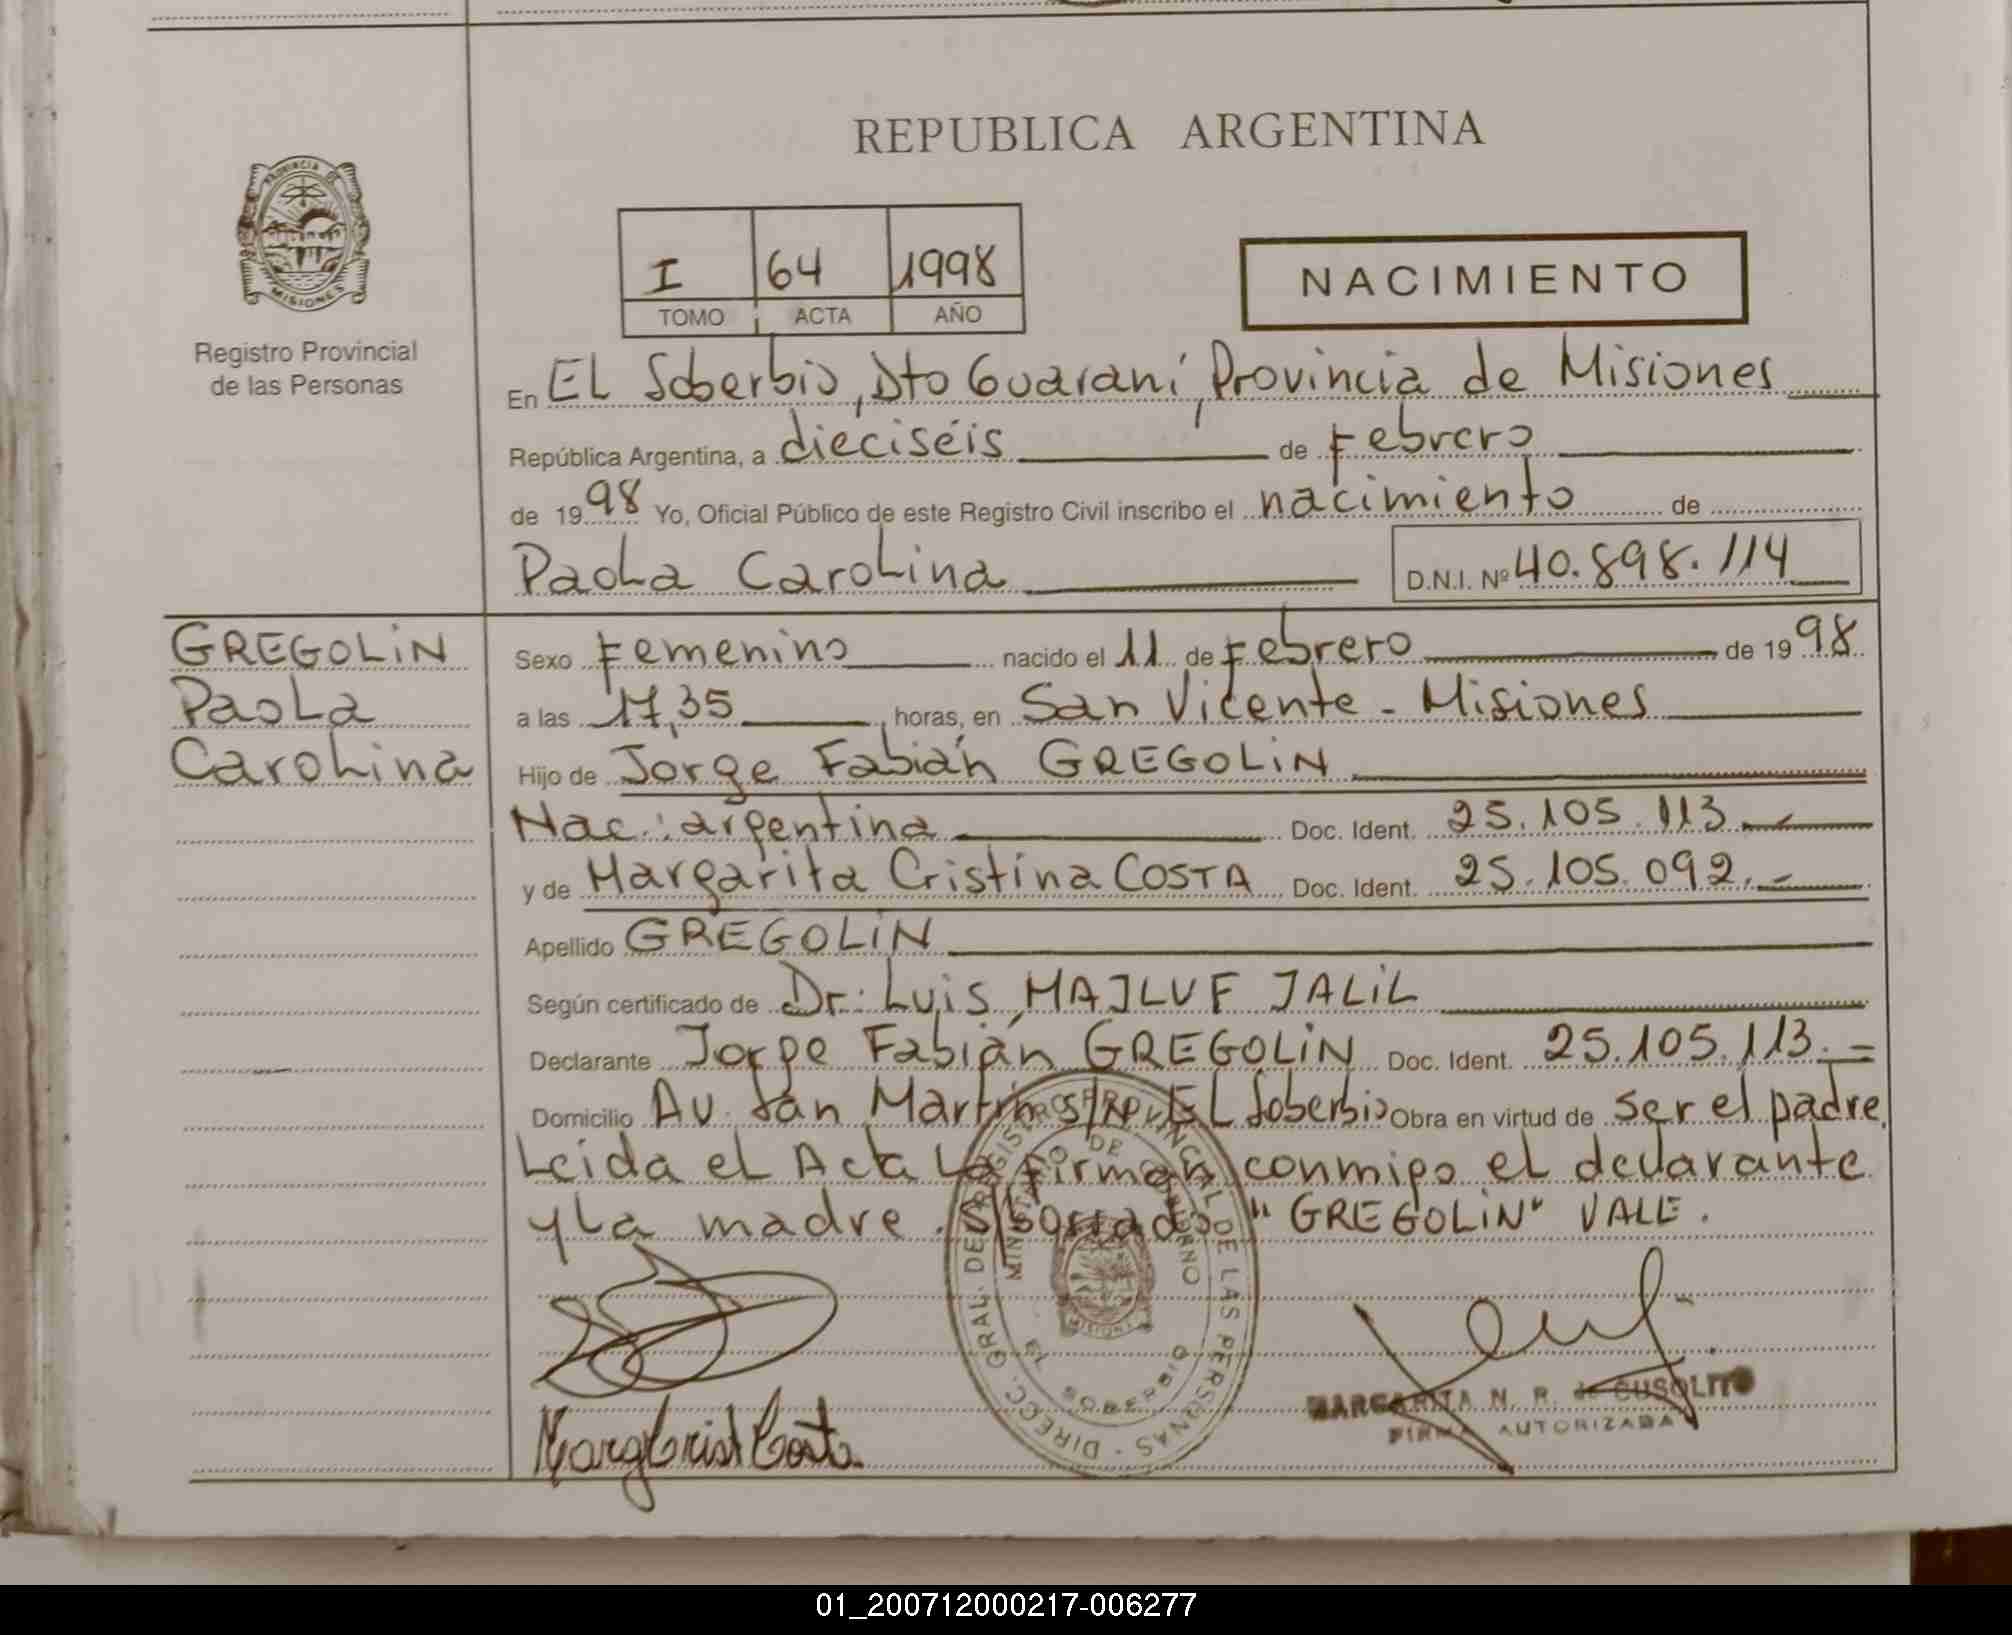 REPUBLICA ARGENTINA
PROVINCIA DE
MISIONES
Registro Provincial
de las Personas
I 64 1998
TOMO ACTA AÑO
NACIMIENTO
En EL Soberbio, Dto Guaraní, Provincia de Misiones
República Argentina, a dieciséis de Febrero
de 1998 Yo, Oficial Público de este Registro Civil inscribo el nacimiento de
Paola Carolina D.N.I. Nº 40.898.114
GREGOLIN
Paola
Carolina
Sexo Femenino nacido el 11 de Febrero de 1998
a las 17,35 horas, en San Vicente - Misiones
Hijo de Jorge Fabián GREGOLIN
Nac.: argentina Doc. Ident. 25.105.113.-
y de Margarita Cristina COSTA Doc. Ident. 25.105.092.-
Apellido GREGOLIN
Según certificado de Dr: Luis MAJLUF JALIL
Declarante Jorge Fabián GREGOLIN Doc. Ident. 25.105.113.=
Domicilio Av. San Martín s/nº, EL Soberbio Obra en virtud de ser el padre,
Leida el Acta La firman conmigo el declarante
y La madre. S/borrado "GREGOLIN" VALE.
DIRECC. GRAL. DE REGISTRO PROVINCIAL DE LAS PERSONAS
MINISTERIO DE GOBIERNO
MISIONES
SOBERBIO
MARGARITA N. R. de CUSOLITO
FIRMA AUTORIZADA
Marg Crist Costa
01_200712000217-006277